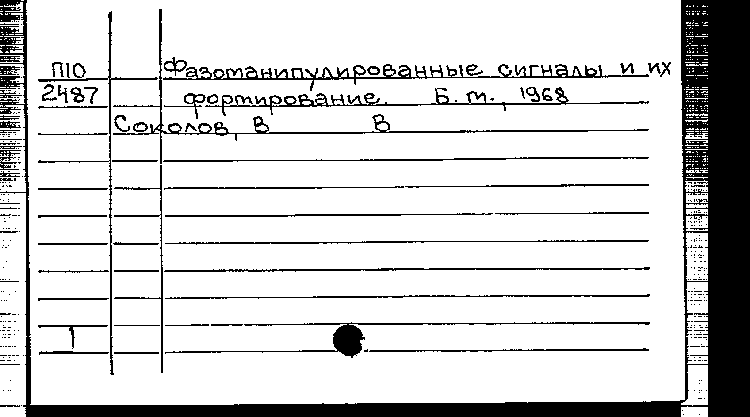 П10 Фазоманипулированные сигналы и их
2487 формирование. Б.м., 1968
Соколов, В В
1